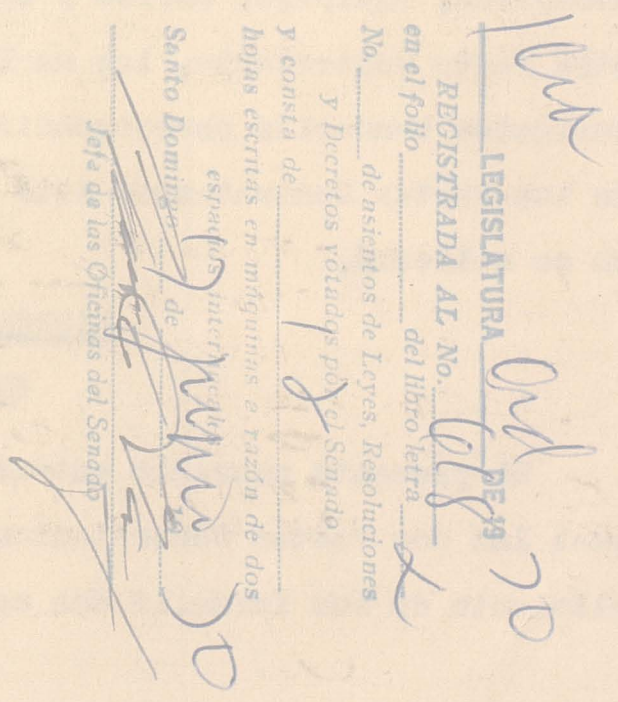 1ra LEGISLATURA Ord DE 1970
REGISTRADA AL No. 618
en el folio ........ del libro letra ........
No. ........ de asientos de Leyes, Resoluciones
y Decretos votados por el Senado
y consta de ........
hojas escritas en máquinas a razón de dos
espacios interlineales
Santo Domingo, de Junio 1970
Jefe de las Oficinas del Senado